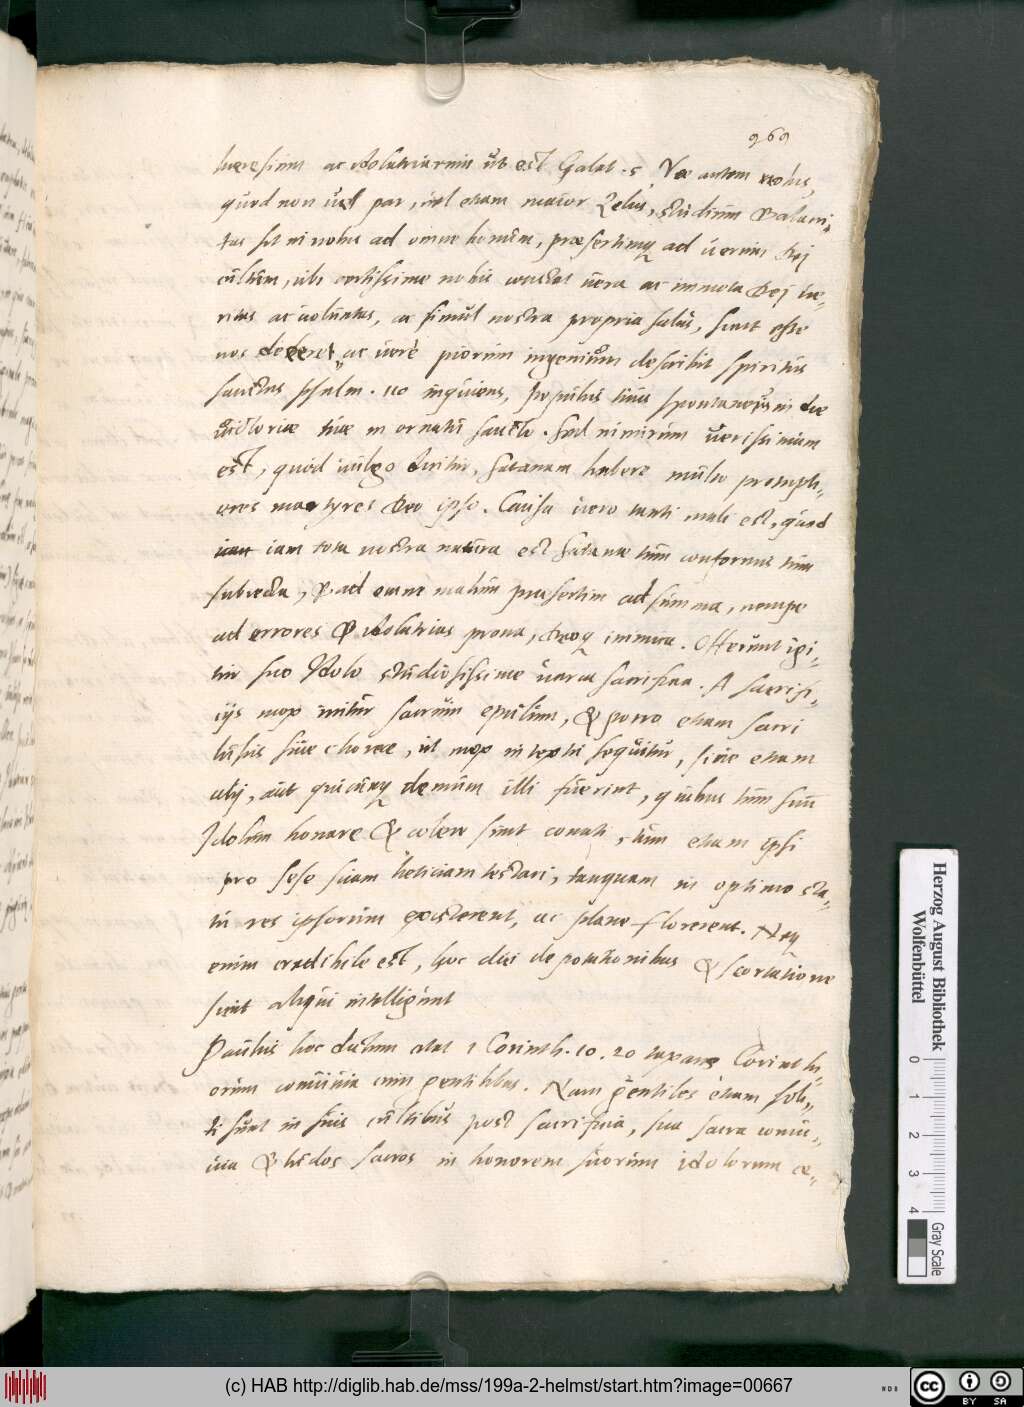 969
haeresium ac idolatriarum ut est Galat. 5. Vae autem nobis,
quod non vel par, vel etiam maior Zelus, studium & alacri„
tas sit in nobis ad omne bonum, praesertimq ad verum Dei
cultum, ubi certissime nobis constat vera ac immota Dei ve„
ritas ac voluntas, ac simul nostra propria salus, sicut esse
nos deberet, ac vere piorum ingenium describit Spiritus
sanctus psalm. 110 inquiens, populus tuus spontaneus in die
victoriae tuae in ornatu sancto. Sed nimirum verissimum
est, quod vulgo dicitur, Satanam habere multo prompti„
ores martyres Deo ipso. Causa vero tanti mali est, quod
iam tota nostra natura est Satanae tum conformis tum
subiecta, & ad omne malum praesertim ad summa, nempe
ad errores & idolatrias prona, Deoq inimica. Offerunt igi„
tur suo Idolo studiosissime varia sacrificia. A sacrifi„
ijs mox initur sacrum epulum, & porro etiam sacri
lusus sive choreae, ut mox in textu sequitur, sive etiam
alij, aut quicunq demum illi fuerint, quibus tum suum
Idolum honare & colere sunt conati, tum etiam ipsi
pro sese suam laeticiam testari, tanquam in optimo sta„
tu res ipsorum existerent, ac plane florerent. Neq
enim credibile est, hoc dici de potationibus & scortatione
sicut aliqui intelligunt
Paulus hoc dictum citat 1 Corinth. 10. 20 taxans Corinthi„
orum convivia cum gentilibus. Nam gentiles etiam soli„
ti sunt in suis cultibus post sacrificia, sua sacra convi„
via & ludos sacros in honorem suorum idolorum ce„
Herzog August Bibliothek
Wolfenbüttel
0 1 2 3 4
Gray Scale
(c) HAB http://diglib.hab.de/mss/199a-2-helmst/start.htm?image=00667
cc BY SA